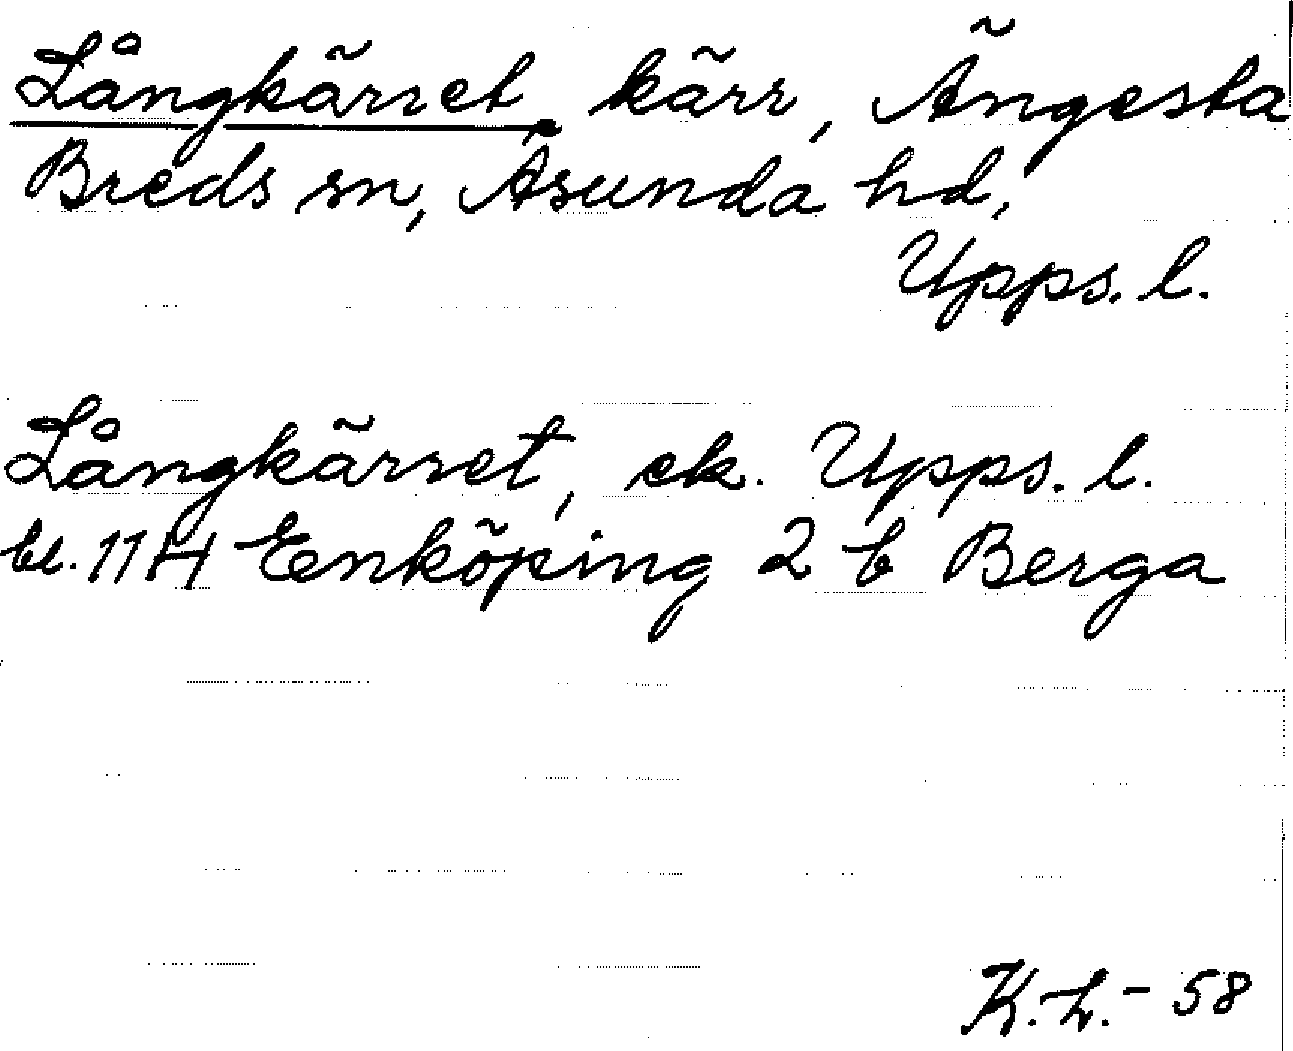 Långkärret, kärr, Ängesta
Breds sn, Åsunda hd,
Upps. l.
Långkärret, ek. Upps. l.
bl. 11H Enköping 2 b Berga
K.L.- 58